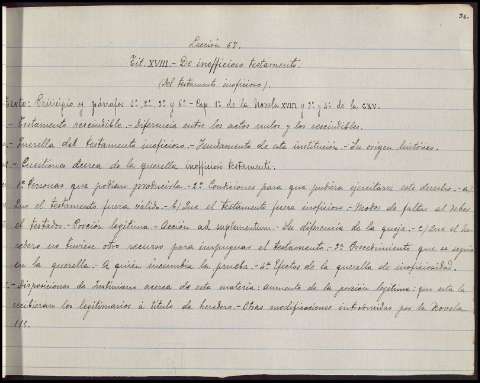 Lección 67.
Tit. XVIII.- De inofficioso testamento.
(Del testamento inoficioso).
Texto: Principio y párrafos 1º, 2º, 3º y 6º - Cap. 1º de la Novela XVIII y 3º y 4º de la CXV.
- Testamento rescindible.- Diferencia entre los actos nulos y los rescindibles.
- Querella del testamento inoficioso.- Fundamento de esta institución.- Su origen histórico.
- Cuestiones acerca de la querella inofficiosi testamenti.
1º Personas que podían producirla.- 2º Condiciones para que pudiera ejercitarse este derecho.- a)
Que el testamento fuera válido.- b) Que el testamento fuera inoficioso.- Modos de faltar al deber
el testador.- Porción legítima.- Acción ad suplementum.- Su diferencia de la queja.- c) Que el he-
redero no tuviese otro recurso para impugnar el testamento.- 3º Procedimiento que se seguía
en la querella.- A quién incumbía la prueba.- 4º Efectos de la querella de inoficiosidad.
- Disposiciones de Justiniano acerca de esta materia: aumento de la porción legítima: que esta la
recibieran los legitimarios á título de heredero.- Otras modificaciones introducidas por la Novela
115.